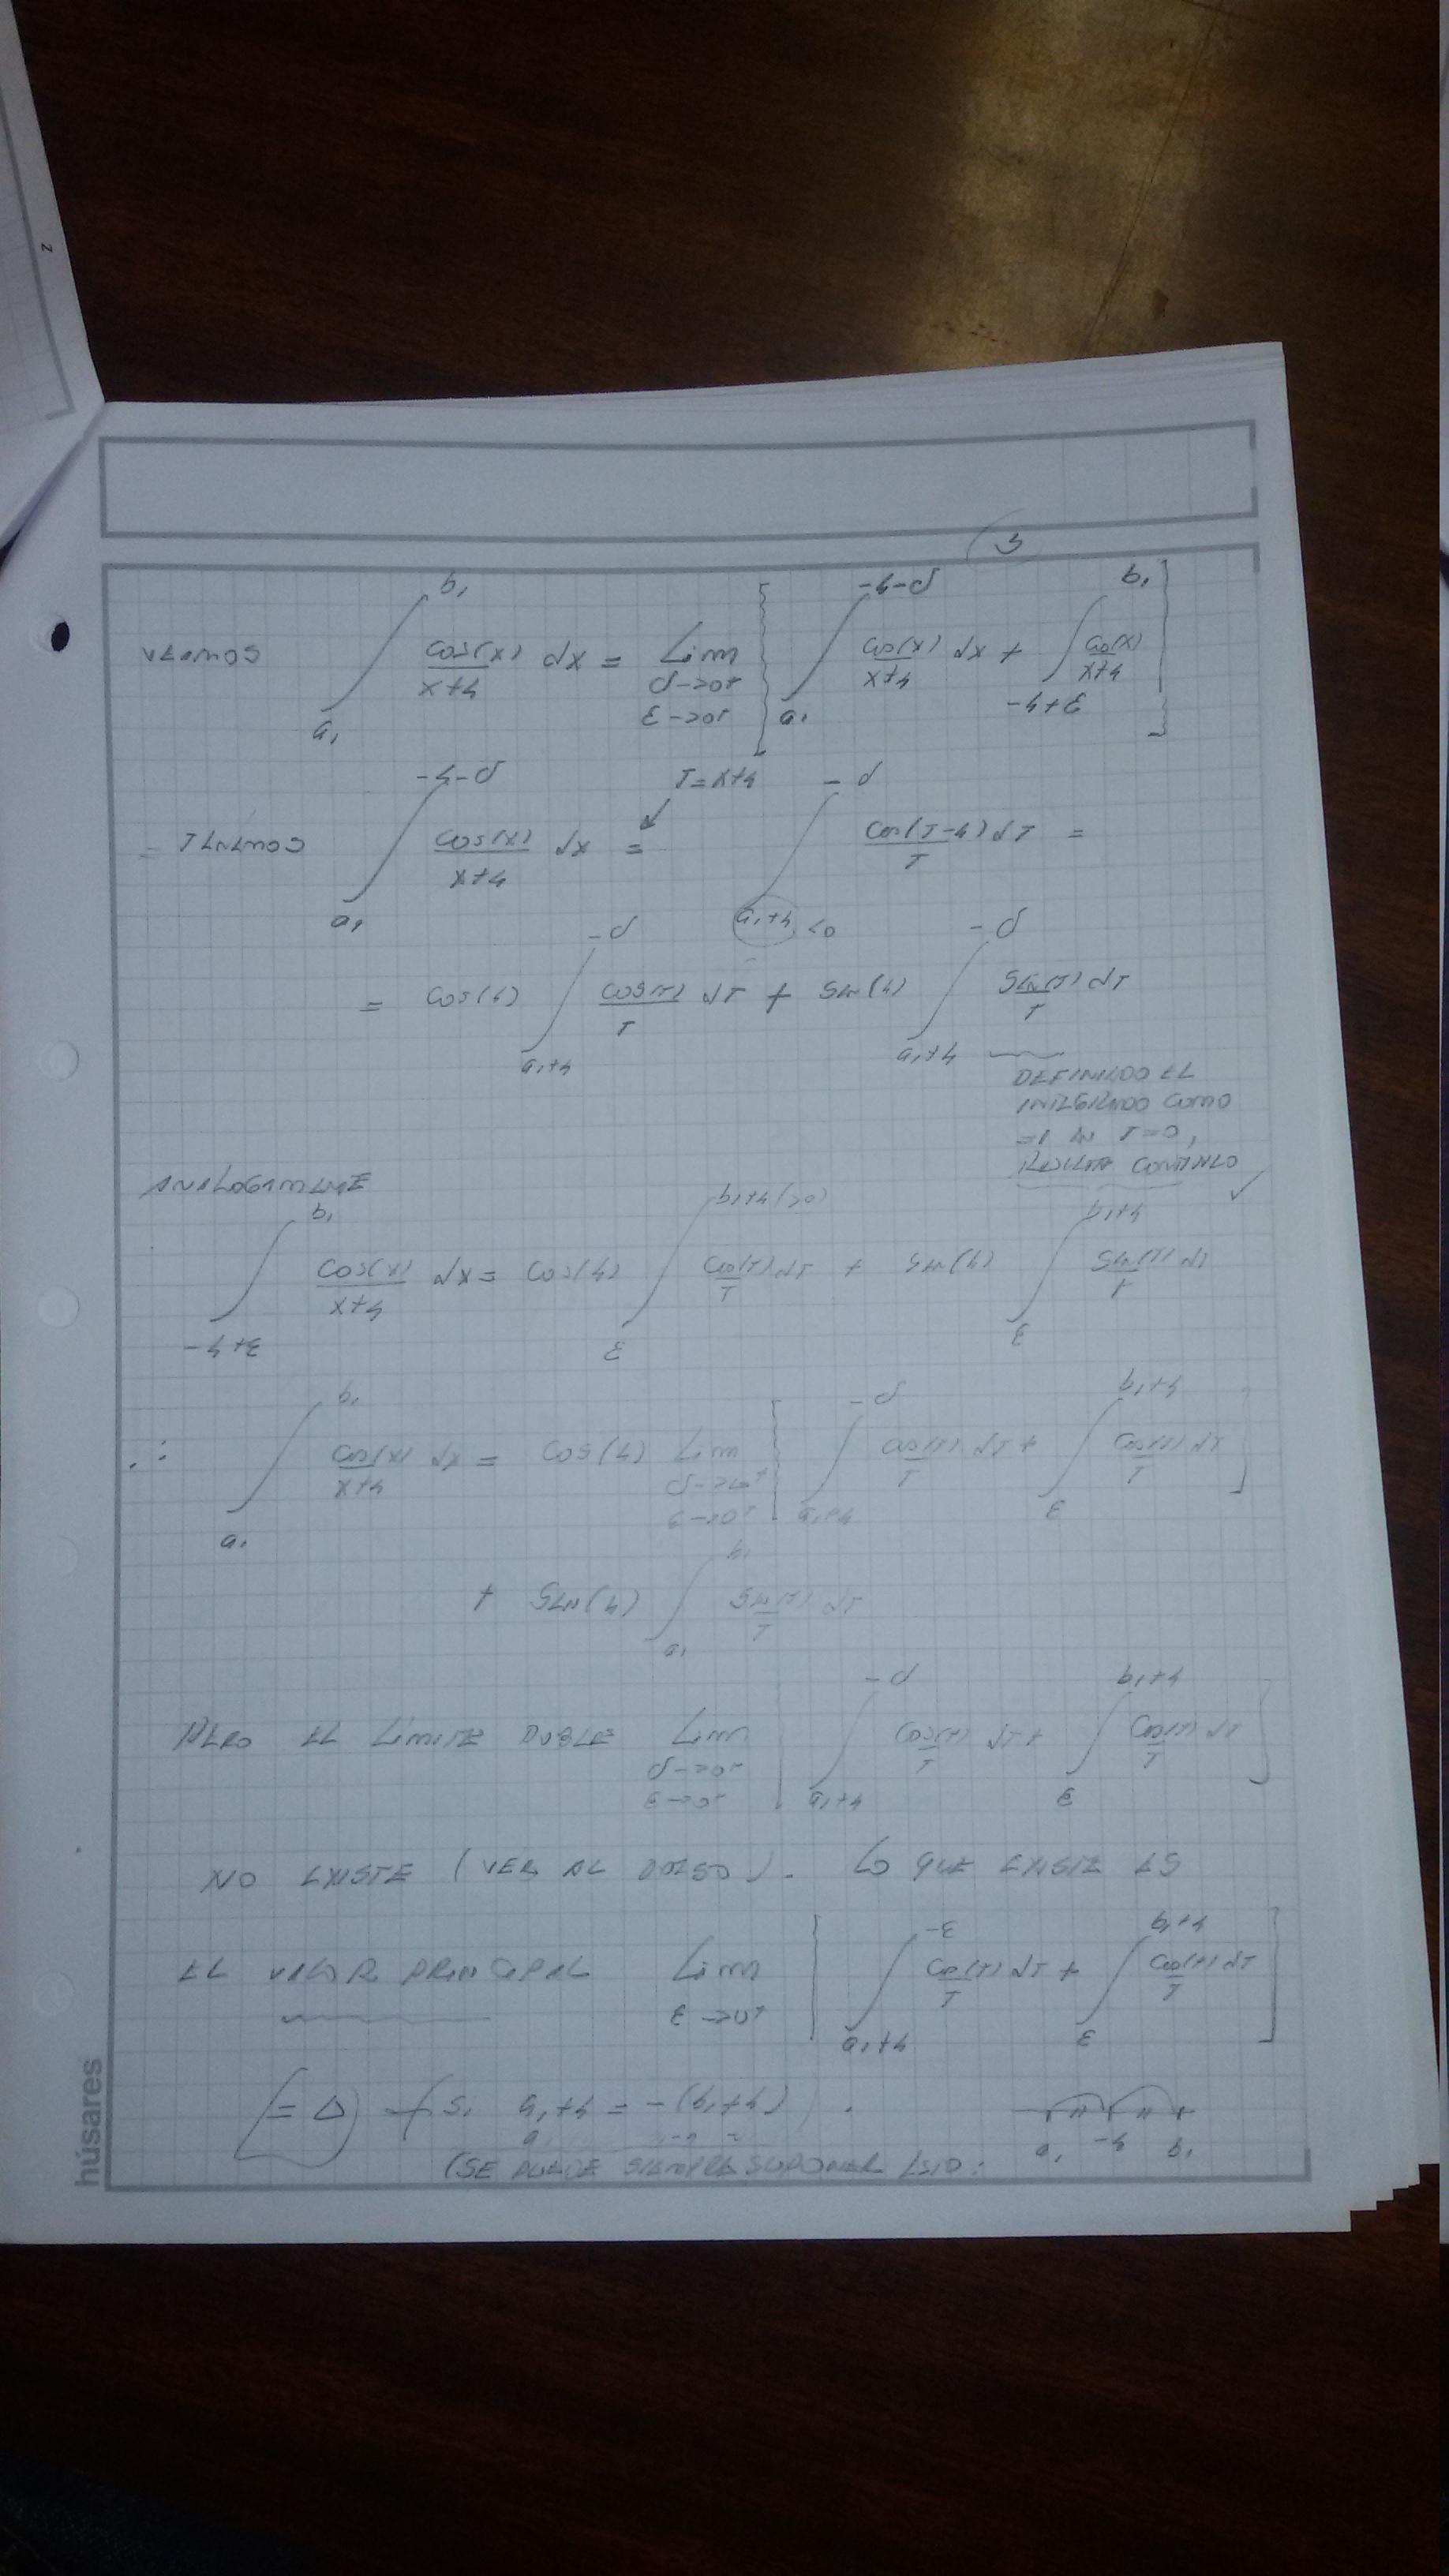 2
3
VEAMOS ∫_{a₁}^{b₁} cos(x)/(x+4) dx = Lim_{δ->0+, ε->0+} [ ∫_{a₁}^{-4-δ} cos(x)/(x+4) dx + ∫_{-4+ε}^{b₁} cos(x)/(x+4) ]
= TENEMOS ∫_{a₁}^{-4-δ} cos(x)/(x+4) dx = T=x+4 ∫_{a₁+4 <0}^{-δ} cos(T-4)/T dT =
= cos(4) ∫_{a₁+4}^{-δ} cos(T)/T dT + SEN(4) ∫_{a₁+4}^{-δ} SEN(T)/T dT
DEFINIDO EL
INTEGRANDO COMO
=1 EN T=0,
RESULTA CONTINUO ✓
ANALOGAMENTE
∫_{-4+ε}^{b₁} cos(x)/(x+4) dx = cos(4) ∫_{ε}^{b₁+4 (>0)} cos(T)/T dT + SEN(4) ∫_{ε}^{b₁+4} SEN(T)/T dT
∴ ∫_{a₁}^{b₁} cos(x)/(x+4) dx = cos(4) Lim_{δ->0+, ε->0+} [ ∫_{a₁+4}^{-δ} cos(T)/T dT + ∫_{ε}^{b₁+4} cos(T)/T dT ]
+ SEN(4) ∫_{a₁}^{b₁} SEN(T)/T dT
PERO EL LÍMITE DOBLE Lim_{δ->0+, ε->0+} [ ∫_{a₁+4}^{-δ} cos(T)/T dT + ∫_{ε}^{b₁+4} cos(T)/T dT ]
NO EXISTE (VER AL DORSO). LO QUE EXISTE ES
EL VALOR PRINCIPAL Lim_{ε->0+} [ ∫_{a₁+4}^{-ε} cos(T)/T dT + ∫_{ε}^{b₁+4} cos(T)/T dT ]
si a₁+4 = -(b₁+4).
a₁ -4 b₁
(SE PUEDE SIEMPRE SUPONER ESTO:
húsares